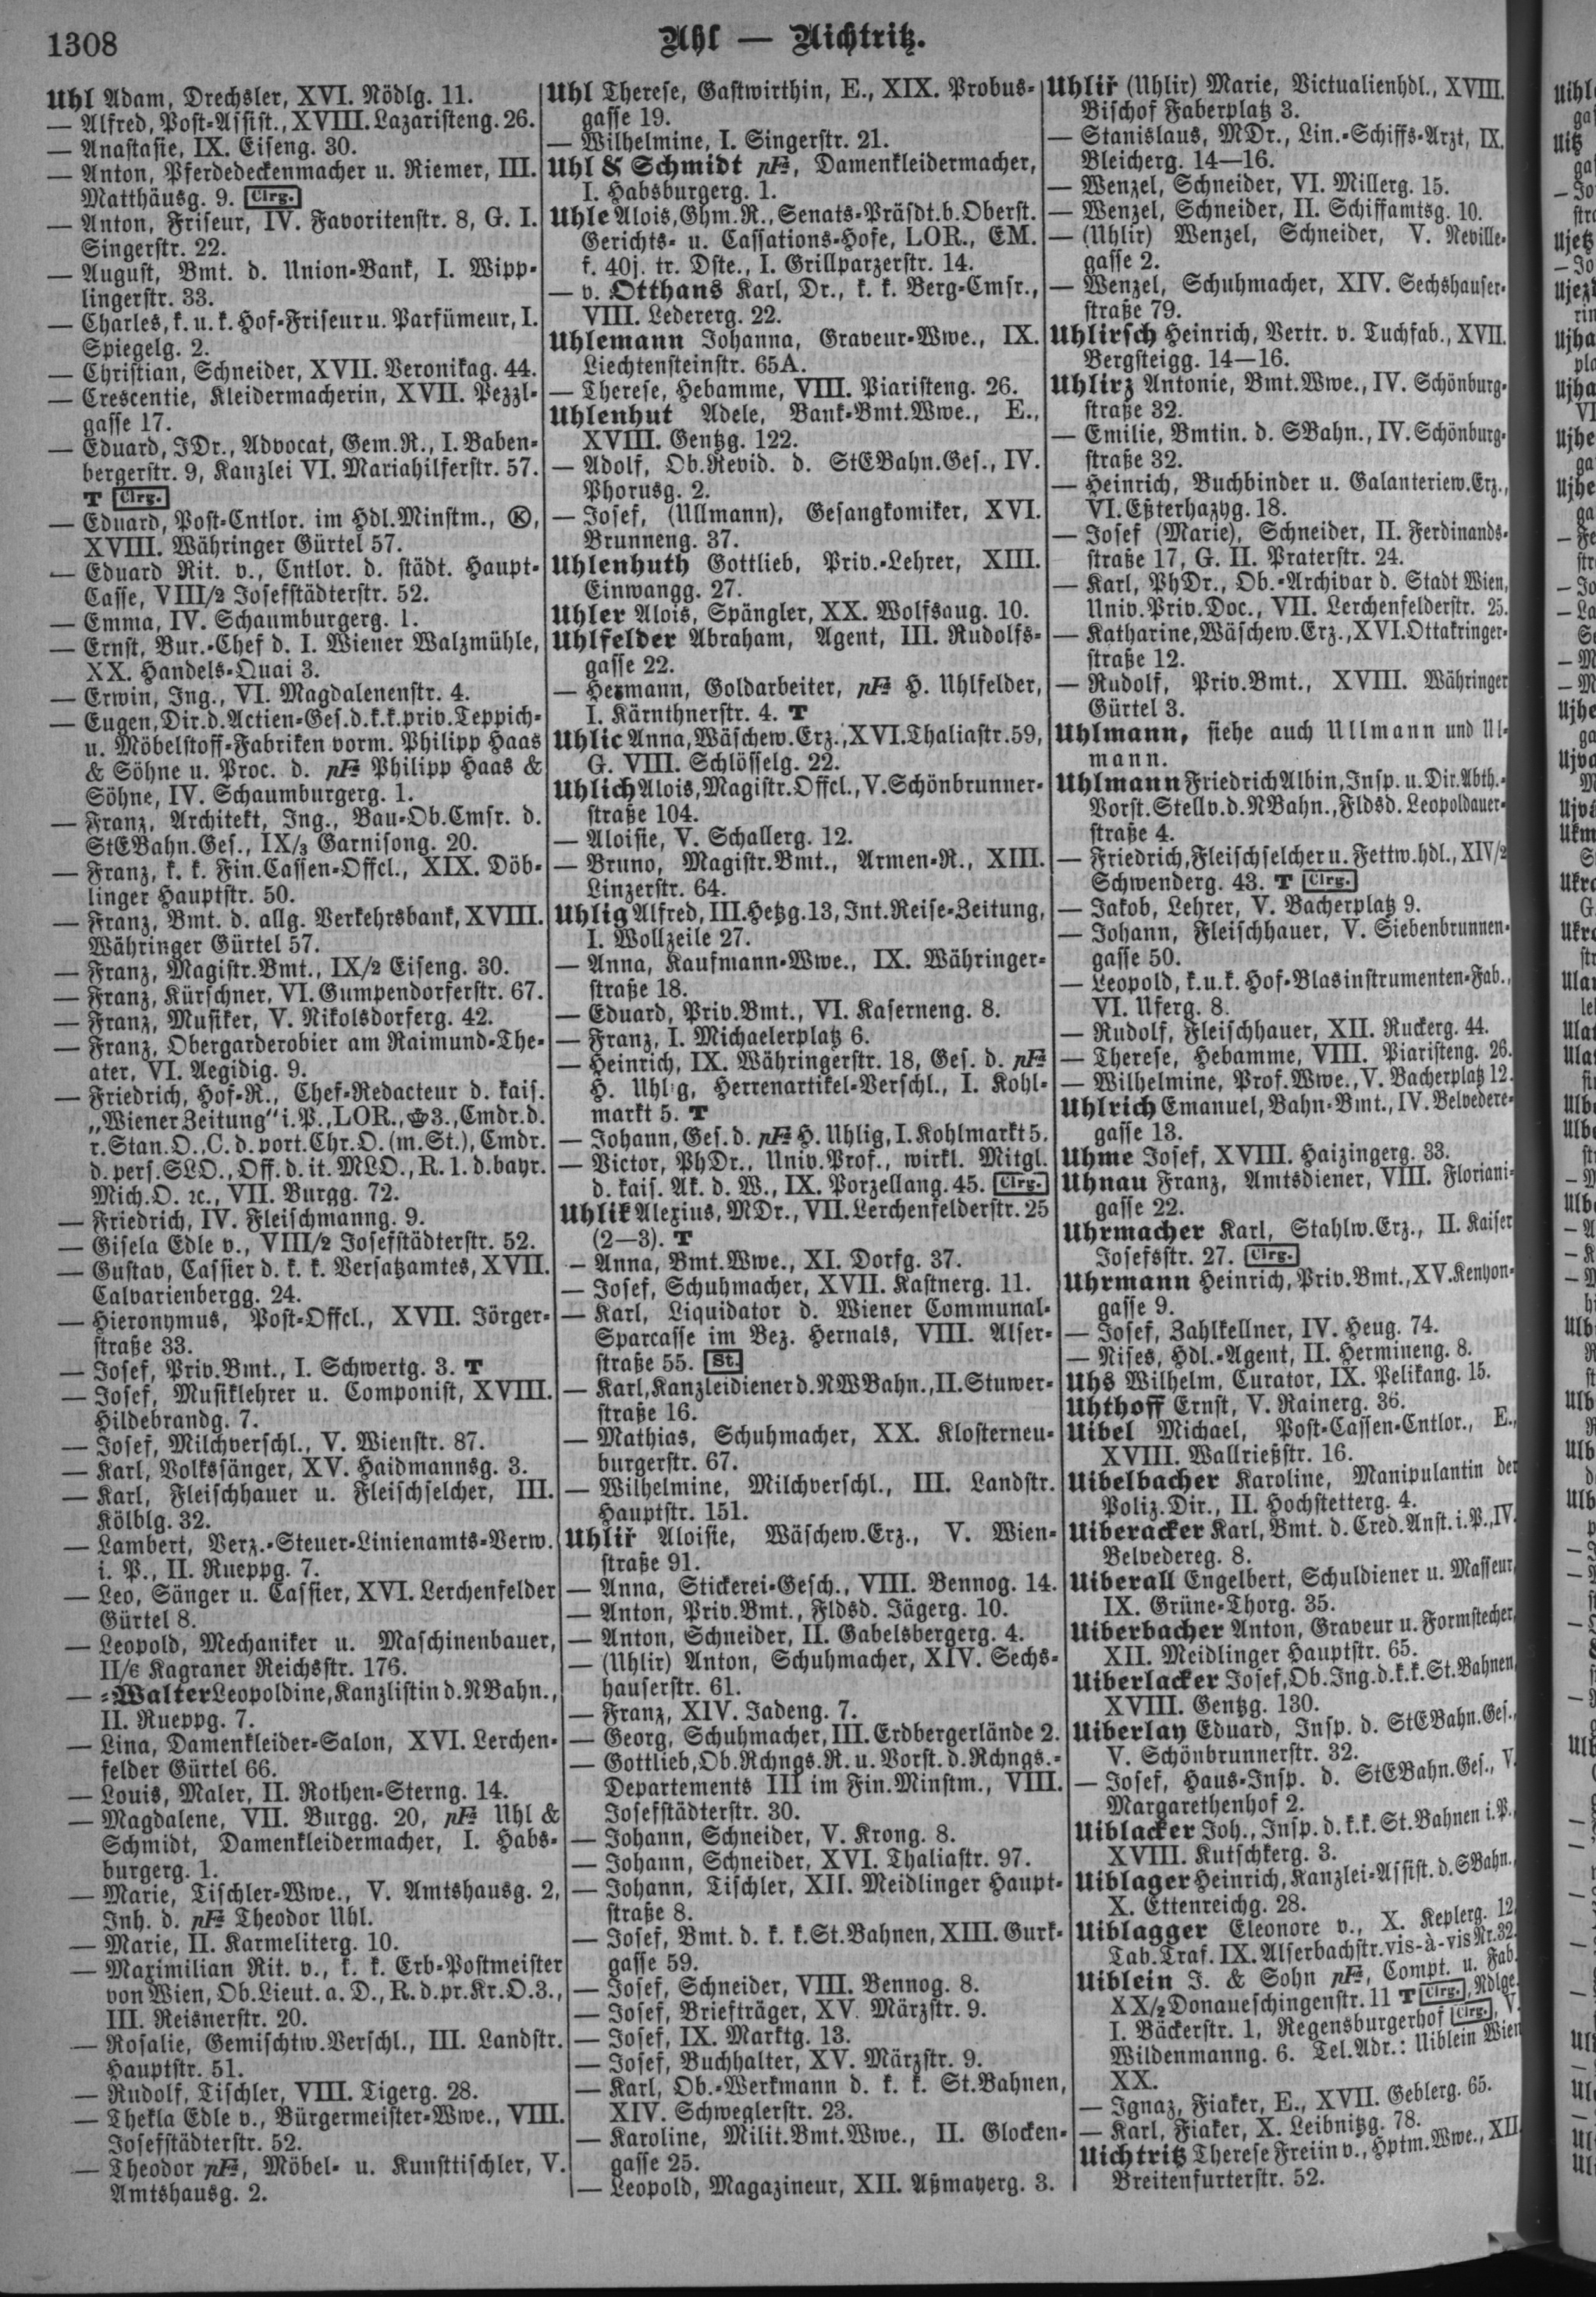 1308
Uhl — Uichtritz.
Uhl Adam, Drechsler, XVI. Nödlg. 11.
— Alfred, Post-Assist., XVIII. Lazaristeng. 26.
— Anastasie, IX. Eiseng. 30.
— Anton, Pferdedeckenmacher u. Riemer, III.
Matthäusg. 9. Clrg.
— Anton, Friseur, IV. Favoritenstr. 8, G. I.
Singerstr. 22.
— August, Bmt. d. Union-Bank, I. Wipp-
lingerstr. 33.
— Charles, k. u. k. Hof-Friseur u. Parfümeur, I.
Spiegelg. 2.
— Christian, Schneider, XVII. Veronikag. 44.
— Crescentie, Kleidermacherin, XVII. Pezzl-
gasse 17.
— Eduard, JDr., Advocat, Gem.R., I. Baben-
bergerstr. 9, Kanzlei VI. Mariahilferstr. 57.
T Clrg.
— Eduard, Post-Cntlor. im Hdl.Minstm., Ⓚ,
XVIII. Währinger Gürtel 57.
— Eduard Rit. v., Cntlor. d. städt. Haupt-
Casse, VIII/2 Josefstädterstr. 52.
— Emma, IV. Schaumburgerg. 1.
— Ernst, Bur.-Chef d. I. Wiener Walzmühle,
XX. Handels-Quai 3.
— Erwin, Ing., VI. Magdalenenstr. 4.
— Eugen, Dir. d. Actien-Ges. d. k. k. priv. Teppich-
u. Möbelstoff-Fabriken vorm. Philipp Haas
& Söhne u. Proc. d. pFa Philipp Haas &
Söhne, IV. Schaumburgerg. 1.
— Franz, Architekt, Ing., Bau-Ob.Cmsr. d.
StEBahn.Ges., IX/3 Garnisong. 20.
— Franz, k. k. Fin.Cassen-Offcl., XIX. Döb-
linger Hauptstr. 50.
— Franz, Bmt. d. allg. Verkehrsbank, XVIII.
Währinger Gürtel 57.
— Franz, Magistr.Bmt., IX/2 Eiseng. 30.
— Franz, Kürschner, VI. Gumpendorferstr. 67.
— Franz, Musiker, V. Nikolsdorferg. 42.
— Franz, Obergarderobier am Raimund-The-
ater, VI. Aegidig. 9.
— Friedrich, Hof-R., Chef-Redacteur d. kais.
„Wiener Zeitung“ i. P., LOR., 3., Cmdr. d.
r. Stan. O., C. d. port. Chr. O. (m. St.), Cmdr.
d. pers. SLO., Off. d. it. MLO., R. 1. d. bayr.
Mich. O. ꝛc., VII. Burgg. 72.
— Friedrich, IV. Fleischmanng. 9.
— Gisela Edle v., VIII/2 Josefstädterstr. 52.
— Gustav, Cassier d. k. k. Versatzamtes, XVII.
Calvarienbergg. 24.
— Hieronymus, Post-Offcl., XVII. Jörger-
straße 33.
— Josef, Priv.Bmt., I. Schwertg. 3. T
— Josef, Musiklehrer u. Componist, XVIII.
Hildebrandg. 7.
— Josef, Milchverschl., V. Wienstr. 87.
— Karl, Volkssänger, XV. Haidmannsg. 3.
— Karl, Fleischhauer u. Fleischselcher, III.
Kölblg. 32.
— Lambert, Verz.-Steuer-Linienamts-Verw.
i. P., II. Rueppg. 7.
— Leo, Sänger u. Cassier, XVI. Lerchenfelder
Gürtel 8.
— Leopold, Mechaniker u. Maschinenbauer,
II/6 Kagraner Reichsstr. 176.
— -Walter Leopoldine, Kanzlistin d. NBahn.,
II. Rueppg. 7.
— Lina, Damenkleider-Salon, XVI. Lerchen-
felder Gürtel 66.
— Louis, Maler, II. Rothen-Sterng. 14.
— Magdalene, VII. Burgg. 20, pFa Uhl &
Schmidt, Damenkleidermacher, I. Habs-
burgerg. 1.
— Marie, Tischler-Wwe., V. Amtshausg. 2,
Inh. d. pFa Theodor Uhl.
— Marie, II. Karmeliterg. 10.
— Maximilian Rit. v., k. k. Erb-Postmeister
von Wien, Ob.Lieut. a. D., R. d. pr. Kr. O. 3.,
III. Reisnerstr. 20.
— Rosalie, Gemischtw.Verschl., III. Landstr.
Hauptstr. 51.
— Rudolf, Tischler, VIII. Tigerg. 28.
— Thekla Edle v., Bürgermeister-Wwe., VIII.
Josefstädterstr. 52.
— Theodor pFa, Möbel- u. Kunsttischler, V.
Amtshausg. 2.
Uhl Therese, Gastwirthin, E., XIX. Probus-
gasse 19.
— Wilhelmine, I. Singerstr. 21.
Uhl & Schmidt pFa, Damenkleidermacher,
I. Habsburgerg. 1.
Uhle Alois, Ghm.R., Senats-Präsdt. b. Oberst.
Gerichts- u. Cassations-Hofe, LOR., EM.
f. 40j. tr. Dste., I. Grillparzerstr. 14.
— v. Otthans Karl, Dr., k. k. Berg-Cmsr.,
VIII. Ledererg. 22.
Uhlemann Johanna, Graveur-Wwe., IX.
Liechtensteinstr. 65A.
— Therese, Hebamme, VIII. Piaristeng. 26.
Uhlenhut Adele, Bank-Bmt.Wwe., E.,
XVIII. Gentzg. 122.
— Adolf, Ob.Revid. d. StEBahn.Ges., IV.
Phorusg. 2.
— Josef, (Ullmann), Gesangkomiker, XVI.
Brunneng. 37.
Uhlenhuth Gottlieb, Priv.-Lehrer, XIII.
Einwangg. 27.
Uhler Alois, Spängler, XX. Wolfsaug. 10.
Uhlfelder Abraham, Agent, III. Rudolfs-
gasse 22.
— Hermann, Goldarbeiter, pFa H. Uhlfelder,
I. Kärnthnerstr. 4. T
Uhlic Anna, Wäschew.Erz., XVI. Thaliastr. 59,
G. VIII. Schlösselg. 22.
Uhlich Alois, Magistr.Offcl., V. Schönbrunner-
straße 104.
— Aloisie, V. Schallerg. 12.
— Bruno, Magistr.Bmt., Armen-R., XIII.
Linzerstr. 64.
Uhlig Alfred, III. Hetzg. 13, Int. Reise-Zeitung,
I. Wollzeile 27.
— Anna, Kaufmann-Wwe., IX. Währinger-
straße 18.
— Eduard, Priv.Bmt., VI. Kaserneng. 8.
— Franz, I. Michaelerplatz 6.
— Heinrich, IX. Währingerstr. 18, Ges. d. pFa
H. Uhlig, Herrenartikel-Verschl., I. Kohl-
markt 5. T
— Johann, Ges. d. pFa H. Uhlig, I. Kohlmarkt 5.
— Victor, PhDr., Univ.Prof., wirkl. Mitgl.
d. kais. Ak. d. W., IX. Porzellang. 45. Clrg.
Uhlik Alexius, MDr., VII. Lerchenfelderstr. 25
(2—3). T
— Anna, Bmt.Wwe., XI. Dorfg. 37.
— Josef, Schuhmacher, XVII. Kastnerg. 11.
— Karl, Liquidator d. Wiener Communal-
Sparcasse im Bez. Hernals, VIII. Alser-
straße 55. St.
— Karl, Kanzleidiener d. NWBahn., II. Stuwer-
straße 16.
— Mathias, Schuhmacher, XX. Klosterneu-
burgerstr. 67.
— Wilhelmine, Milchverschl., III. Landstr.
Hauptstr. 151.
Uhliř Aloisie, Wäschew.Erz., V. Wien-
straße 91.
— Anna, Stickerei-Gesch., VIII. Bennog. 14.
— Anton, Priv.Bmt., Fldsd. Jägerg. 10.
— Anton, Schneider, II. Gabelsbergerg. 4.
— (Uhlir) Anton, Schuhmacher, XIV. Sechs-
hauserstr. 61.
— Franz, XIV. Jadeng. 7.
— Georg, Schuhmacher, III. Erdbergerlände 2.
— Gottlieb, Ob.Rchngs.R. u. Vorst. d. Rchngs.-
Departements III im Fin.Minstm., VIII.
Josefstädterstr. 30.
— Johann, Schneider, V. Krong. 8.
— Johann, Schneider, XVI. Thaliastr. 97.
— Johann, Tischler, XII. Meidlinger Haupt-
straße 8.
— Josef, Bmt. d. k. k. St.Bahnen, XIII. Gurk-
gasse 59.
— Josef, Schneider, VIII. Bennog. 8.
— Josef, Briefträger, XV. Märzstr. 9.
— Josef, IX. Marktg. 13.
— Josef, Buchhalter, XV. Märzstr. 9.
— Karl, Ob.-Werkmann d. k. k. St.Bahnen,
XIV. Schweglerstr. 23.
— Karoline, Milit.Bmt.Wwe., II. Glocken-
gasse 25.
— Leopold, Magazineur, XII. Aßmayerg. 3.
Uhliř (Uhlir) Marie, Victualienhdl., XVIII.
Bischof Faberplatz 3.
— Stanislaus, MDr., Lin.-Schiffs-Arzt, IX.
Bleicherg. 14—16.
— Wenzel, Schneider, VI. Millerg. 15.
— Wenzel, Schneider, II. Schiffamtsg. 10.
— (Uhlir) Wenzel, Schneider, V. Neville-
gasse 2.
— Wenzel, Schuhmacher, XIV. Sechshauser-
straße 79.
Uhlirsch Heinrich, Vertr. v. Tuchfab., XVII.
Bergsteigg. 14—16.
Uhlirz Antonie, Bmt.Wwe., IV. Schönburg-
straße 32.
— Emilie, Bmtin. d. SBahn., IV. Schönburg-
straße 32.
— Heinrich, Buchbinder u. Galanteriew.Erz.,
VI. Eßterhazyg. 18.
— Josef (Marie), Schneider, II. Ferdinands-
straße 17, G. II. Praterstr. 24.
— Karl, PhDr., Ob.-Archivar d. Stadt Wien,
Univ.Priv.Doc., VII. Lerchenfelderstr. 25.
— Katharine, Wäschew.Erz., XVI. Ottakringer-
straße 12.
— Rudolf, Priv.Bmt., XVIII. Währinger
Gürtel 3.
Uhlmann, siehe auch Ullmann und Ul-
mann.
Uhlmann Friedrich Albin, Insp. u. Dir. Abth.-
Vorst.Stellv. d. NBahn., Fldsd. Leopoldauer-
straße 4.
— Friedrich, Fleischselcher u. Fettw.hdl., XIV/2
Schwenderg. 43. T Clrg.
— Jakob, Lehrer, V. Bacherplatz 9.
— Johann, Fleischhauer, V. Siebenbrunnen-
gasse 50.
— Leopold, k. u. k. Hof-Blasinstrumenten-Fab.,
VI. Uferg. 8.
— Rudolf, Fleischhauer, XII. Ruckerg. 44.
— Therese, Hebamme, VIII. Piaristeng. 26.
— Wilhelmine, Prof.Wwe., V. Bacherplatz 12.
Uhlrich Emanuel, Bahn-Bmt., IV. Belvedere-
gasse 13.
Uhme Josef, XVIII. Haizingerg. 33.
Uhnau Franz, Amtsdiener, VIII. Floriani-
gasse 22.
Uhrmacher Karl, Stahlw.Erz., II. Kaiser
Josefsstr. 27. Clrg.
Uhrmann Heinrich, Priv.Bmt., XV. Kenyon-
gasse 9.
— Josef, Zahlkellner, IV. Heug. 74.
— Nises, Hdl.-Agent, II. Hermineng. 8.
Uhs Wilhelm, Curator, IX. Pelikang. 15.
Uhthoff Ernst, V. Rainerg. 36.
Uibel Michael, Post-Cassen-Cntlor., E.,
XVIII. Wallrießstr. 16.
Uibelbacher Karoline, Manipulantin der
Poliz.Dir., II. Hochstetterg. 4.
Uiberacker Karl, Bmt. d. Cred.Anst. i. P., IV.
Belvedereg. 8.
Uiberall Engelbert, Schuldiener u. Masseur,
IX. Grüne-Thorg. 35.
Uiberbacher Anton, Graveur u. Formstecher,
XII. Meidlinger Hauptstr. 65.
Uiberlacker Josef, Ob.Ing. d. k. k. St.Bahnen,
XVIII. Gentzg. 130.
Uiberlay Eduard, Insp. d. StEBahn.Ges.,
V. Schönbrunnerstr. 32.
— Josef, Haus-Insp. d. StEBahn.Ges., V.
Margarethenhof 2.
Uiblacker Joh., Insp. d. k. k. St.Bahnen i. P.,
XVIII. Kutschkerg. 3.
Uiblager Heinrich, Kanzlei-Assist. d. SBahn.,
X. Ettenreichg. 28.
Uiblagger Eleonore v., X. Keplerg. 12,
Tab.Traf. IX. Alserbachstr. vis-à-vis Nr. 32.
Uiblein J. & Sohn pFa, Compt. u. Fab.
XX/2 Donaueschingenstr. 11 T Clrg., Ndlge.
I. Bäckerstr. 1, Regensburgerhof Clrg., V.
Wildenmanng. 6. Tel.Adr.: Uiblein Wien
XX.
— Ignaz, Fiaker, E., XVII. Geblerg. 65.
— Karl, Fiaker, X. Leibnitzg. 78.
Uichtritz Therese Freiin v., Hptm.Wwe., XII.
Breitenfurterstr. 52.